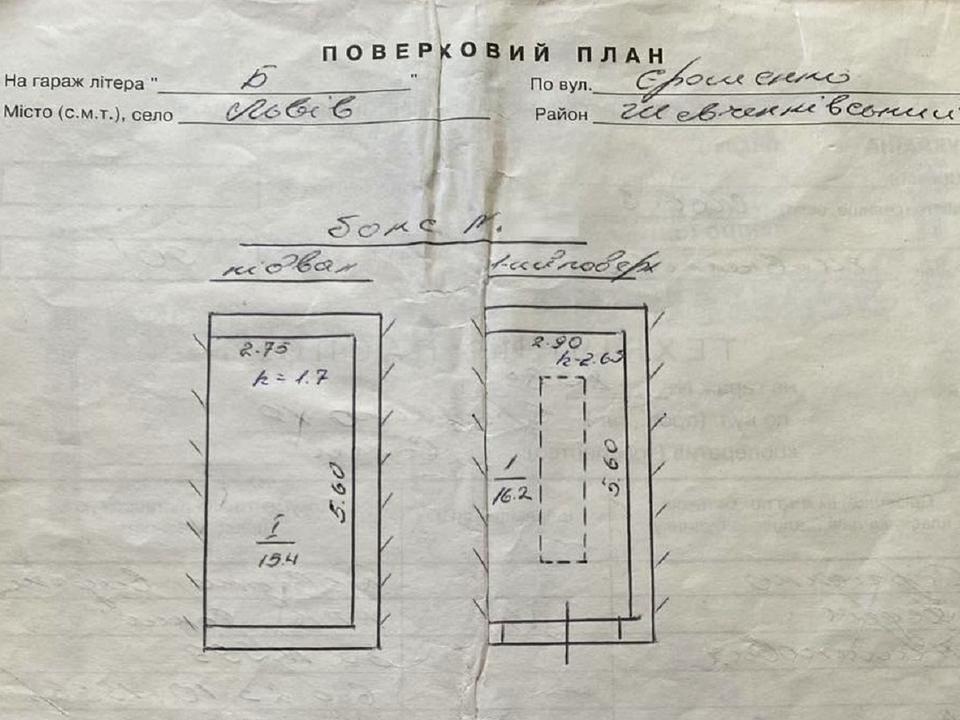 ПОВЕРХОВИЙ ПЛАН
На гараж літера " Б "
По вул. Єрошенко
Місто (с.м.т.), село Львів
Район Шевченківський
бокс N.
підвал
1-ий поверх
2.75
h = 1.7
5.60
I
15.4
2.90
h-2.65
1
16.2
5.60